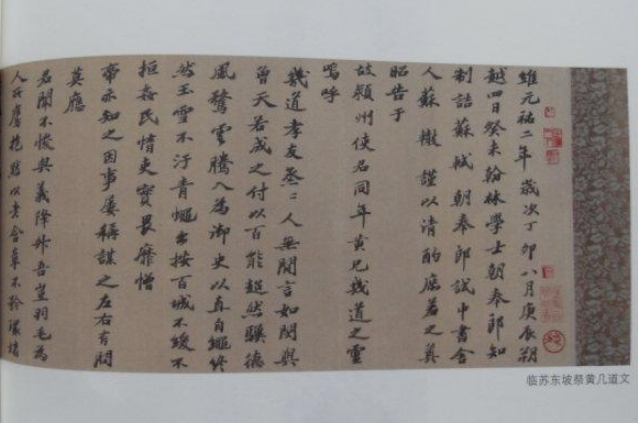 維元祐二年歲次丁卯八月庚辰朔
越四日癸未翰林學士朝奉郎知
制誥蘇軾朝奉郎試中書舍
人蘇轍謹以清酌庶羞之奠
昭告于
故潁州使君同年黃兄幾道之靈
嗚呼
幾道孝友烝〻人無間言如閔與
曾天若成之付以百能超然驥德
風騖雲騰入為御史以直自繩終
然玉雪不汙青蠅出按百城不緩不
拒姦民惰吏實畏靡憎
帝亦知之因事屢稱謀之左右有問
莫應
君聞不悛與義降升吾豈羽毛為
人所鷹抱默以老含章不矜環堵
临苏东坡祭黄几道文